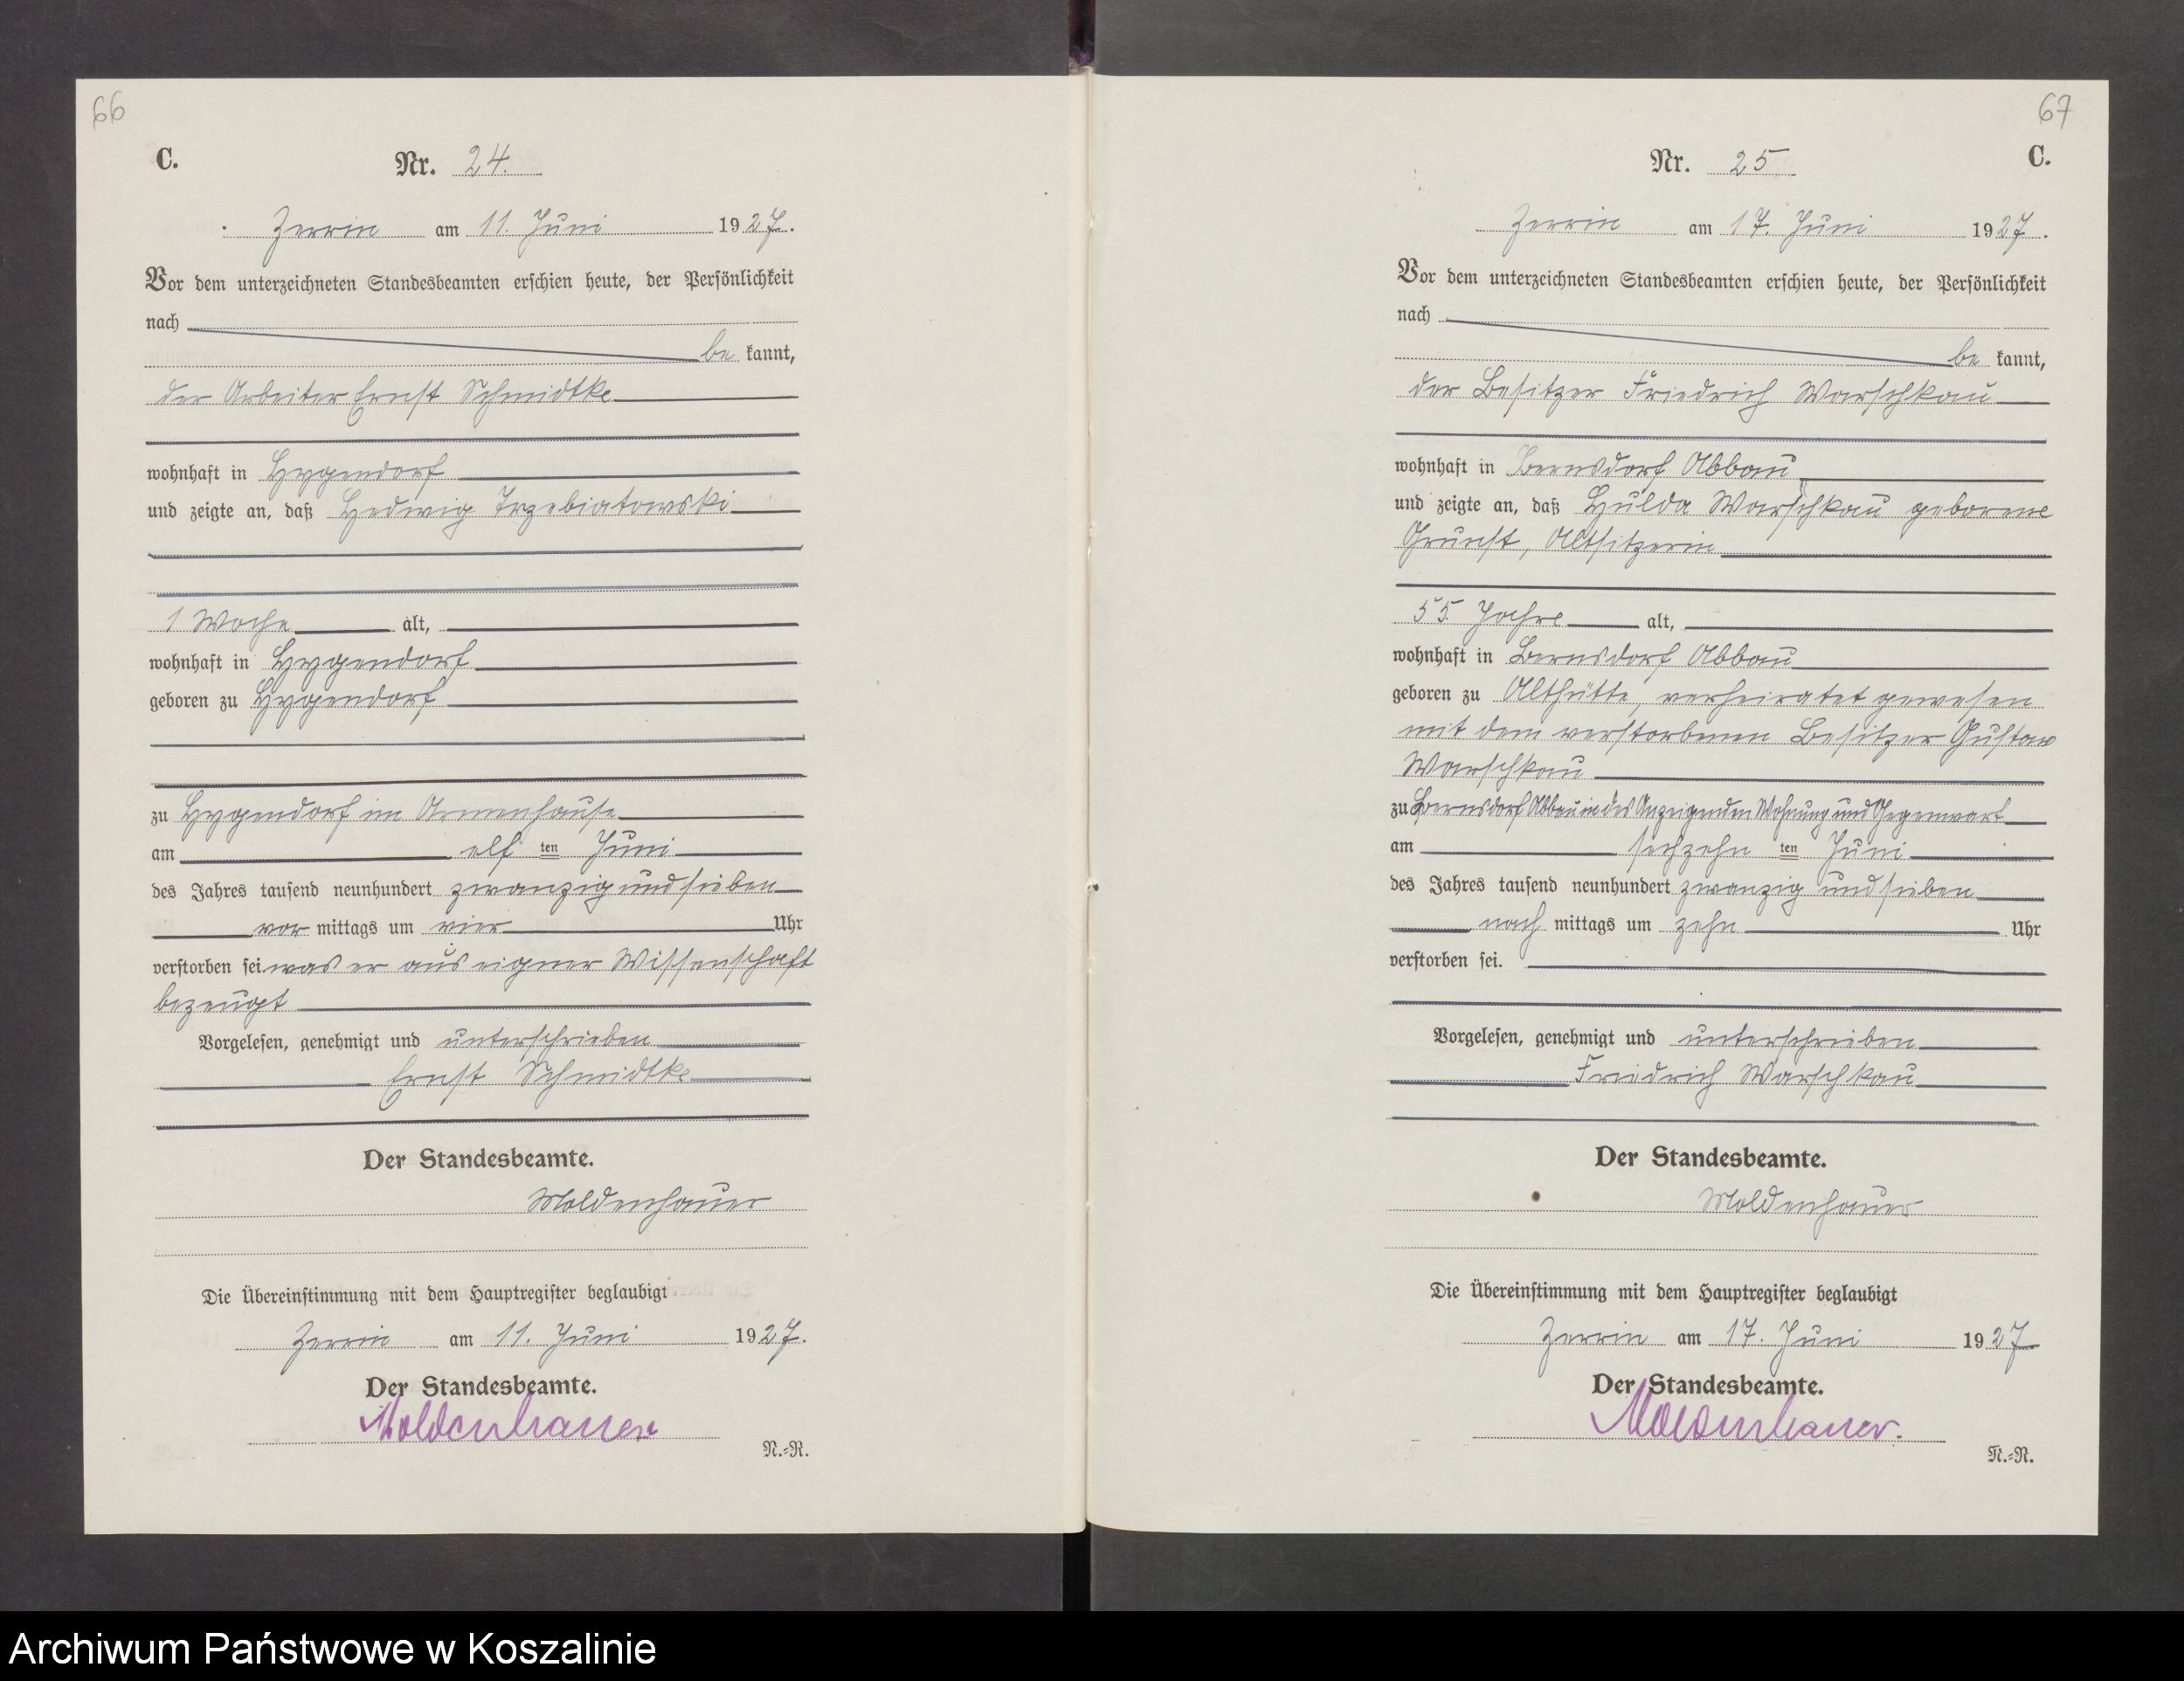 66
C.
Nr. 24.
Zerrin am 11. Juni 1927.
Vor dem unterzeichneten Standesbeamten erschien heute, der Persönlichkeit
nach
be kannt,
der Arbeiter Ernst Schmidtke
wohnhaft in Hygendorf
und zeigte an, daß Hedwig Trzebiatowski
1 Woche alt,
wohnhaft in Hygendorf
geboren zu Hygendorf
zu Hygendorf im Armenhause
am elf ten Juni
des Jahres tausend neunhundert zwanzig und sieben
vor mittags um vier Uhr
verstorben sei was er aus eigner Wissenschaft
bezeugt
Vorgelesen, genehmigt und unterschrieben
Ernst Schmidtke
Der Standesbeamte.
Moldenhauer
Die Übereinstimmung mit dem Hauptregister beglaubigt
Zerrin am 11. Juni 1927.
Der Standesbeamte.
Moldenhauer
N.=R.
67
Nr. 25
C.
Zerrin am 17. Juni 1927.
Vor dem unterzeichneten Standesbeamten erschien heute, der Persönlichkeit
nach
be kannt,
der Besitzer Friedrich Warschkau
wohnhaft in Bernsdorf Abbau
und zeigte an, daß Hulda Warschkau geborene
Grunst, Altsitzerin
55 Jahre alt,
wohnhaft in Bernsdorf Abbau
geboren zu Althütte, verheiratet gewesen
mit dem verstorbenen Besitzer Gustav
Warschkau
zu Bernsdorf Abbau in des Anzeigenden Wohnung und Gegenwart
am sechzehn ten Juni
des Jahres tausend neunhundert zwanzig und sieben
nach mittags um zehn Uhr
verstorben sei.
Vorgelesen, genehmigt und unterschrieben
Friedrich Warschkau
Der Standesbeamte.
Moldenhauer
Die Übereinstimmung mit dem Hauptregister beglaubigt
Zerrin am 17. Juni 1927
Der Standesbeamte.
Moldenhauer.
N.=R.
Archiwum Państwowe w Koszalinie